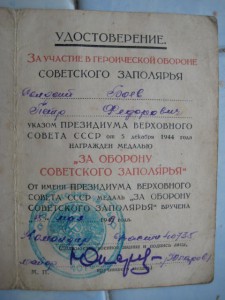 УДОСТОВЕРЕНИЕ.
ЗА УЧАСТИЕ В ГЕРОИЧЕСКОЙ ОБОРОНЕ
СОВЕТСКОГО ЗАПОЛЯРЬЯ
Петр Федорович
указом ПРЕЗИДИУМА ВЕРХОВНОГО
СОВЕТА СССР от 5 декабря 1944 года
НАГРАЖДЕН МЕДАЛЬЮ
„ЗА ОБОРОНУ
СОВЕТСКОГО ЗАПОЛЯРЬЯ"
ОТ ИМЕНИ ПРЕЗИДИУМА ВЕРХОВНОГО
СОВЕТА СССР МЕДАЛЬ „ЗА ОБОРОНУ
СОВЕТСКОГО ЗАПОЛЯРЬЯ" ВРУЧЕНА
мая
Командир
майор
М. П.